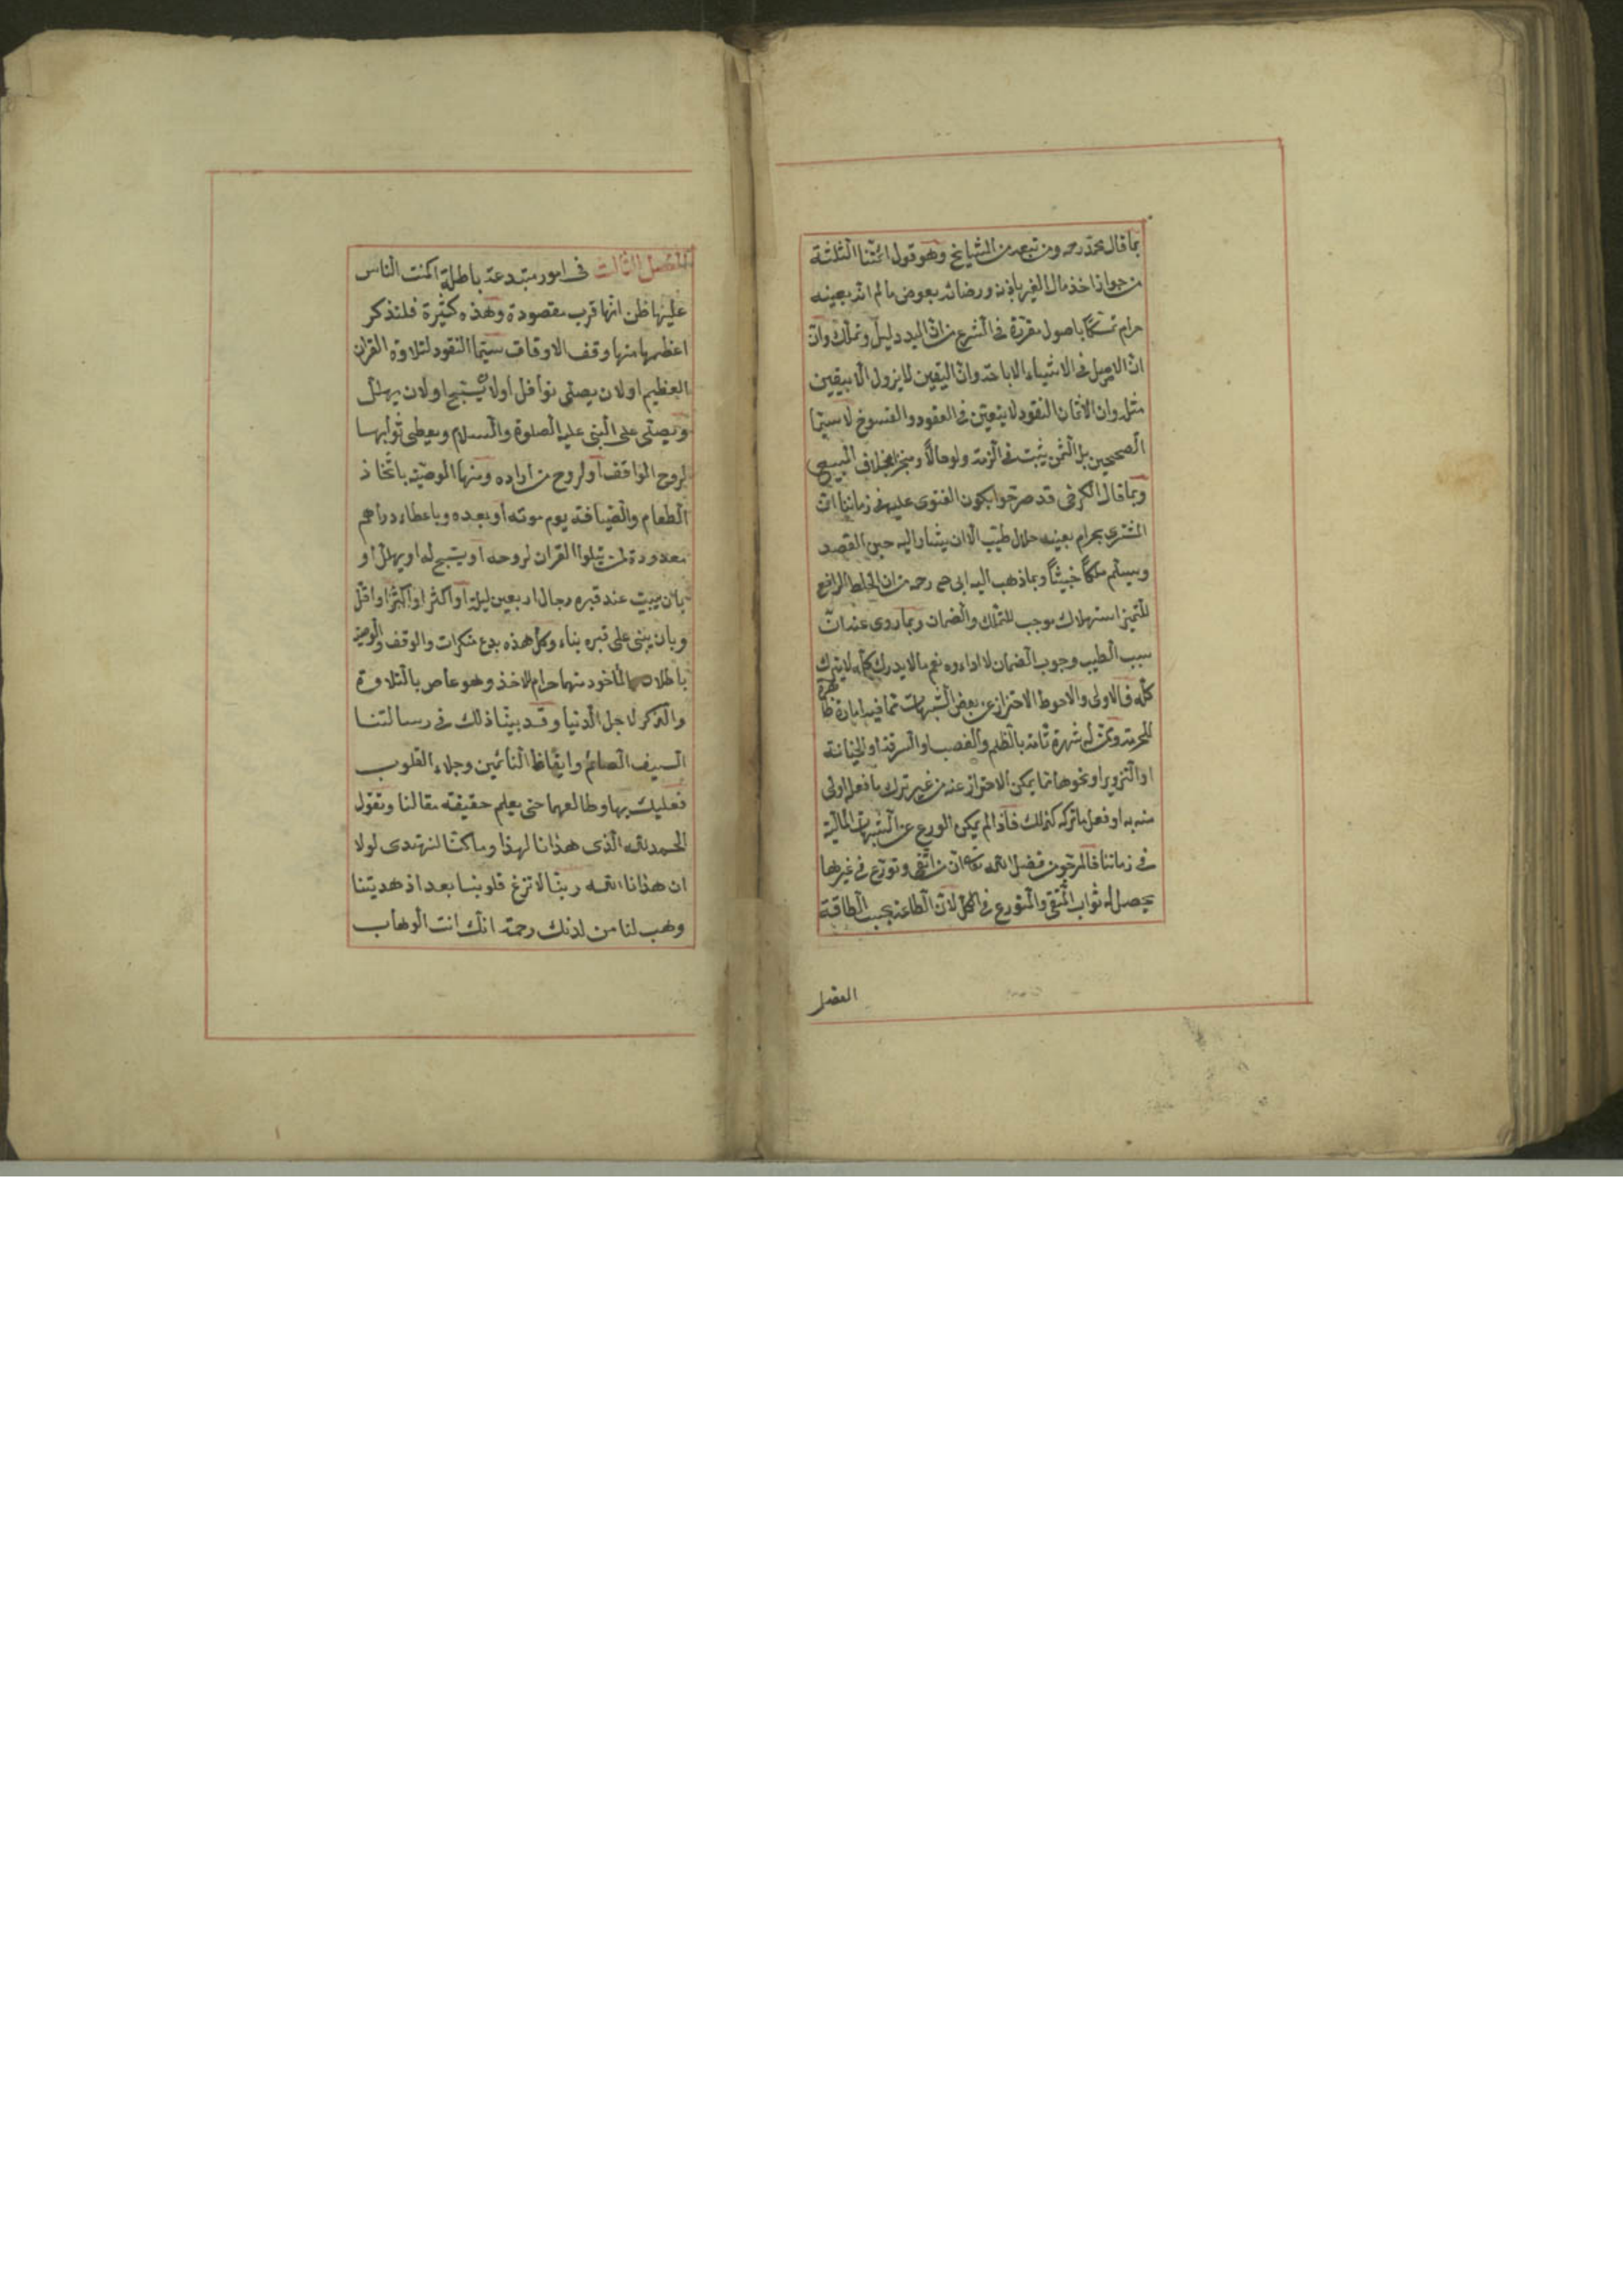 بما قال محمد رحه ومن تبعه من المشايخ وهو قول ائمتنا الثلثة
من جواز اخذ مال الغير باذنه ورضائه بعوض مالم انه بعينه
حرام تمسكا باصول مقررة فى الشرع من ان اليد دليل وتملك وان
ان الاصل فى الاشياء الاباحة وان اليقين لا يزول الا بيقين
مثله وان الاثمان النقود لا يتعين فى العقود والفسوخ لا سيما
الصحيحين بل الثمن يثبت فى الذمة ولو حالاً ومنجزا بخلاف المبيع
وبما قال الكرخى قد صرحوا بكون الفتوى عليه فى زماننا ان
المشترى بحرام بعينه حلال طيب الا ان يشار اليه حين القصد
ويسلم ملكاً خبيثاً وبما ذهب اليه ابى ح رحه من ان الخلط الرافع
للتميز استهلاك موجب للتملك والضمان وبما روى عنه ان
سبب الطيب وجوب الضمان لا اداءه نعم مالا يدرك كله لا يترك
كله فالاولى والاحوط الاحتراز عن بعض الشبهات مما فيه امارة ظاهرة
للحرمة ومن له شهرة تامة بالظلم والغصب او السرقة او الخيانة
او التزوير او نحوها مما يمكن الاحتراز عنه من غير ترك ما فعله اولى
منه به او فعل ما تركه كذلك فاذا لم يمكن الورع عن الشبهات المالية
فى زماننا فالمرجو من فضل الله تعا ان من اتقى وتورع فى غيرها
يحصل له ثواب المتقى والمتورع فى الكل لان الطاعة بحسب الطاقة
الفصل
الفصل الثالث فى امور مبتدعة باطلة اكبت الناس
عليها ظن انها قرب مقصودة وهذه كثيرة فلنذكر
اعظمها منها وقف الاوقاف سيما النقود لتلاوة القران
العظيم او لان يصلى نوافل او لان يسبح او لان يهلل
ويصلى على النبى عليه الصلوة والسلام ويعطى ثوابها
لروح الواقف او لروح من اراده ومنها الوصية باتخاذ
الطعام والضيافة يوم موته او بعده وباعطاء دراهم
معدودة لمن يتلوا القران لروحه او يسبح له او يهلل او
بان يبيت عند قبره رجال اربعين ليلة او اكثر او اقل
وبان يبنى على قبره بناء وكل هذه بدع منكرات والوقف والوصية
باطلان والمأخود منهما حرام للاخذ وهو عاص بالتلاوة
والذكر لاجل الدنيا وقد بينا ذلك فى رسالتنا
السيف الصارم وايقاظ النائمين وجلاء القلوب
فعليك بها وطالعها حتى يعلم حقيقة مقالنا وتقول
الحمد لله الذى هذانا لهذا وما كنا لنهتدى لولا
ان هذانا الله ربنا لا تزغ قلوبنا بعد اذ هديتنا
وهب لنا من لدنك رحمة انك انت الوهاب